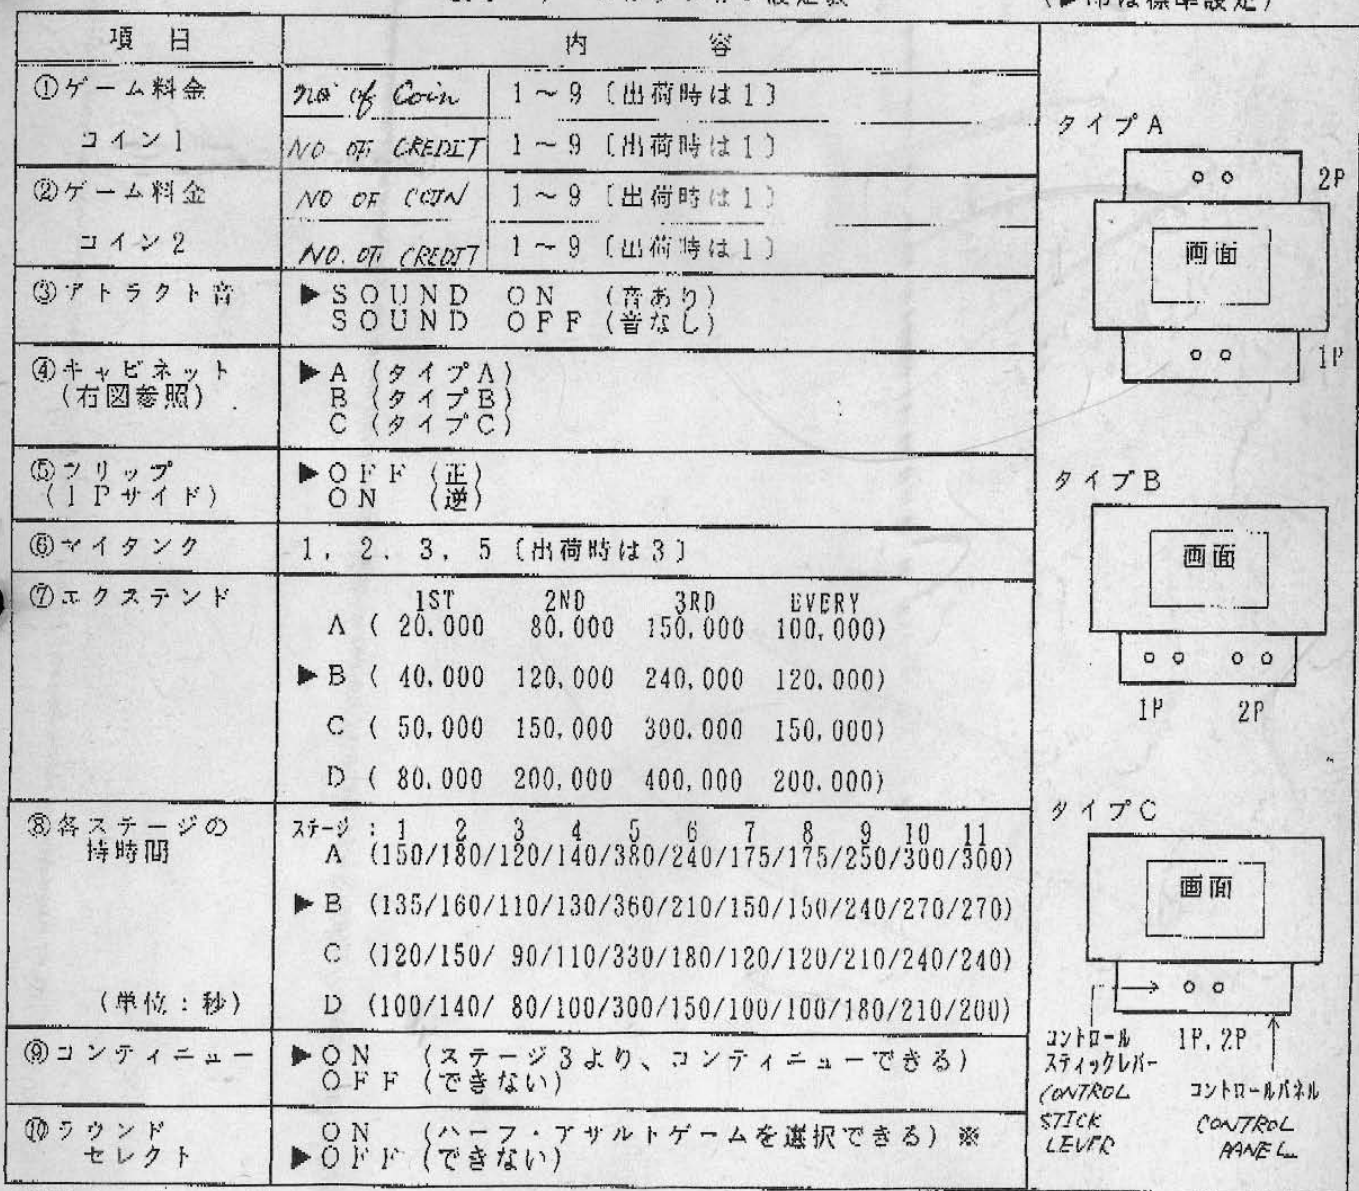 (▶印は標準設定)
項 目
内 容
①ゲーム料金
コイン1
no of Coin 1～9〔出荷時は1〕
NO OF CREDIT 1～9〔出荷時は1〕
②ゲーム料金
コイン2
NO OF COIN 1～9〔出荷時は1〕
NO. OF CREDIT 1～9〔出荷時は1〕
③アトラクト音
▶SOUND ON (音あり)
SOUND OFF (音なし)
④キャビネット
(右図参照)
▶A (タイプA)
B (タイプB)
C (タイプC)
⑤フリップ
(1Pサイド)
▶OFF (正)
ON (逆)
⑥マイタンク
1, 2, 3, 5〔出荷時は3〕
⑦エクステンド
1ST 2ND 3RD EVERY
A ( 20,000 80,000 150,000 100,000)
▶B ( 40,000 120,000 240,000 120,000)
C ( 50,000 150,000 300,000 150,000)
D ( 80,000 200,000 400,000 200,000)
⑧各ステージの
持時間
(単位:秒)
ステージ : 1 2 3 4 5 6 7 8 9 10 11
A (150/180/120/140/380/240/175/175/250/300/300)
▶B (135/160/110/130/360/210/150/150/240/270/270)
C (120/150/ 90/110/330/180/120/120/210/240/240)
D (100/140/ 80/100/300/150/100/100/180/210/200)
⑨コンティニュー
▶ON (ステージ3より、コンティニューできる)
OFF (できない)
⑩ラウンド
セレクト
ON (ハーフ・アサルトゲームを選択できる)※
▶OFF (できない)
タイプA
2P
画面
1P
タイプB
画面
1P 2P
タイプC
画面
コントロール
スティックレバー
CONTROL
STICK
LEVER
1P, 2P
コントロールパネル
CONTROL
PANEL